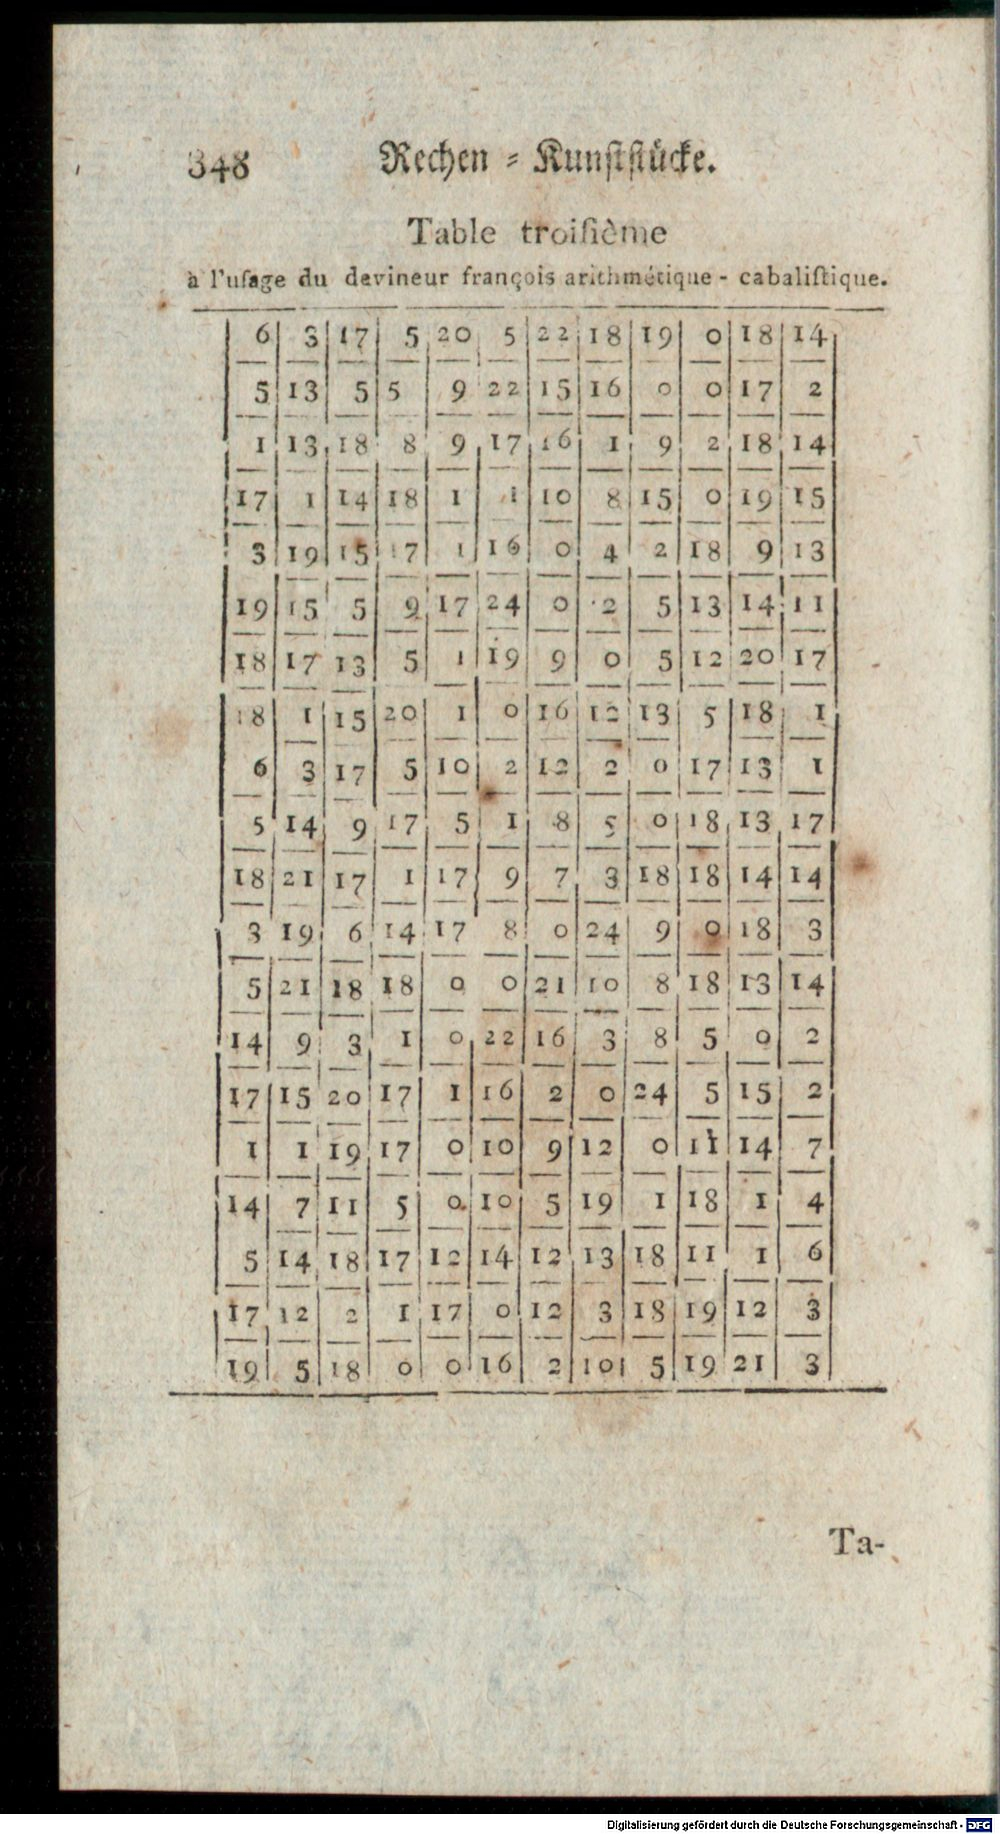 348 Rechen = Kunſtſtücke.
Table troiſième
à l'uſage du devineur françois arithmétique - cabaliſtique.
6 3 17 5 20 5 22 18 19 0 18 14
5 13 5 5 9 22 15 16 0 0 17 2
1 13 18 8 9 17 16 1 9 2 18 14
17 1 14 18 1 1 10 8 15 0 19 15
3 19 15 17 1 16 0 4 2 18 9 13
19 15 5 9 17 24 0 2 5 13 14 11
18 17 13 5 1 19 9 0 5 12 20 17
18 1 15 20 1 0 16 12 13 5 18 1
6 3 17 5 10 2 12 2 0 17 13 1
5 14 9 17 5 1 8 5 0 18 13 17
18 21 17 1 17 9 7 3 18 18 14 14
3 19 6 14 17 8 0 24 9 0 18 3
5 21 18 18 0 0 21 10 8 18 13 14
14 9 3 1 0 22 16 3 8 5 0 2
17 15 20 17 1 16 2 0 24 5 15 2
1 1 19 17 0 10 9 12 0 11 14 7
14 7 11 5 0 10 5 19 1 18 1 4
5 14 18 17 12 14 12 13 18 11 1 6
17 12 2 1 17 0 12 3 18 19 12 3
19 5 18 0 0 16 2 10 5 19 21 3
Ta-
Digitalisierung gefördert durch die Deutsche Forschungsgemeinschaft - DFG